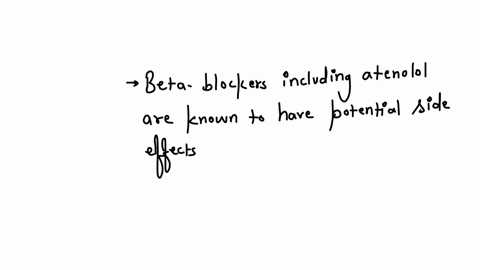 → Beta-blockers including atenolol
are known to have potential side
effects